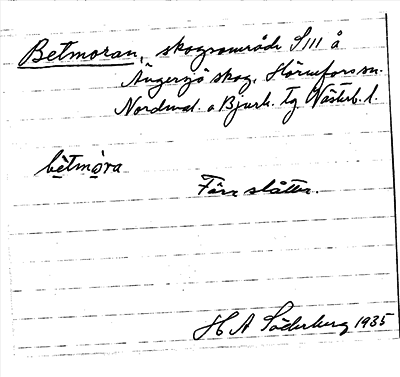 Betmoran, skogsområde S III å
Ängersjö skog, Hörnefors sn.
Nordmal. o Bjurh. tg Västerb. l.
bètmòra
Förr slåtter.
H A Söderberg 1935